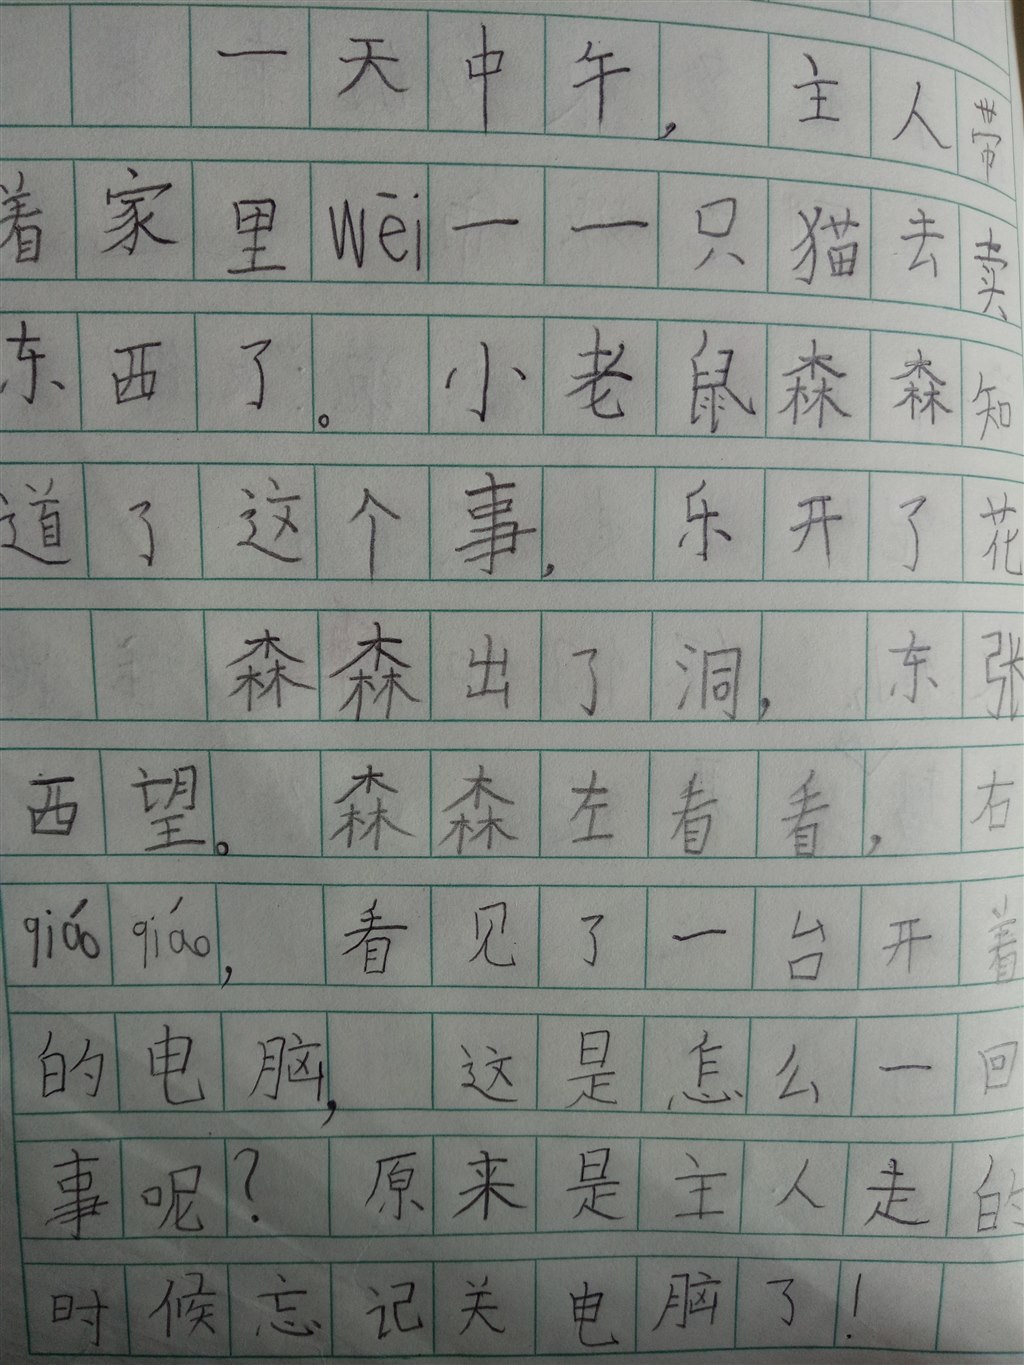 一天中午，主人带
着家里wēi一一只猫去卖
东西了。小老鼠森森知
道了这个事，乐开了花
森森出了洞，东张
西望。森森左看看，右
qiáo qiáo，看见了一台开着
的电脑，这是怎么一回
事呢？原来是主人走的
时候忘记关电脑了！